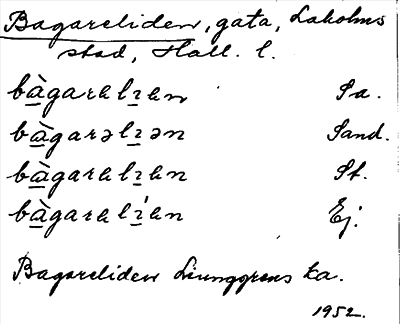 Bagareliden, gata, Laholms
stad, Hall. l.
bàgarelɪen Sa.
bàgarəlɪən Sand.
bàgarelɪen St.
bàgarelɪ́en Ej.
Bagareliden Ljunggrens ka.
1952.